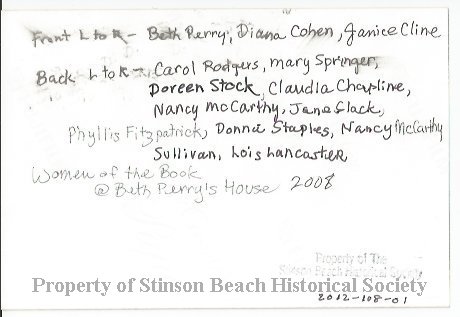 Front L to R - Beth Perry, Diana Cohen, Janice Cline
Back L to R - Carol Rodgers, Mary Springer,
Doreen Stock, Claudia Chapline,
Nancy McCarthy, Jane Slack,
Phyllis Fitzpatrick, Donna Staples, Nancy McCarthy
Sullivan, Lois Lancaster,
Women of the Book
@ Beth Perry's House 2008
Property of The
Stinson Beach Historical Society
Property of Stinson Beach Historical Society
2012-108-01